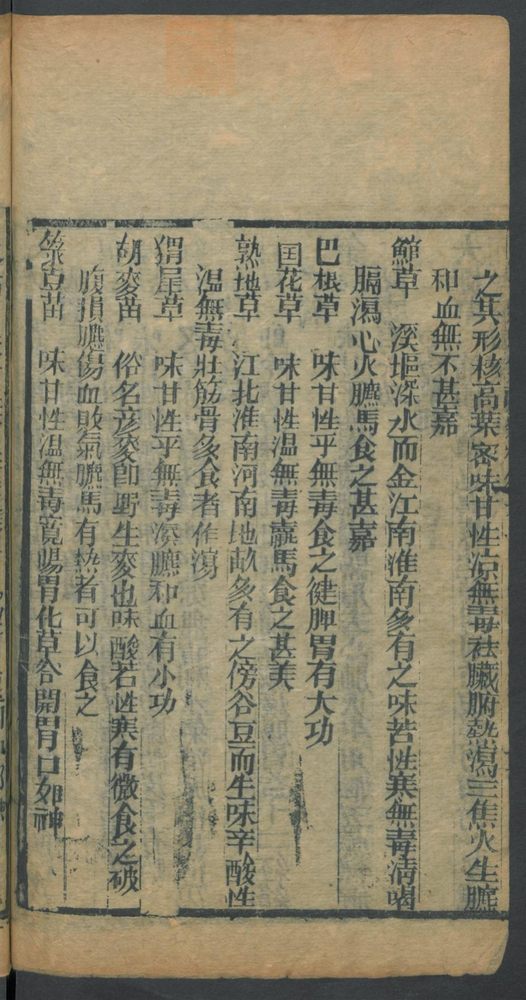 之其形核高葉密味甘性凉無毒祛臟腑熱瀉三焦火生臕
和血無不甚嘉
草 溪堀深水而金江南淮南多有之味苦性寒無毒清喝
膈瀉心火臕馬食之甚嘉
巴根草 味甘性平無毒食之健脾胃有大功
囯花草 味甘性温無毒羸馬食之甚美
熟地草 江北淮南河南地畝多有之傍谷豆而生味辛酸性
温無毒壯筋骨多食者作瀉
猬屋草 味甘性平無毒添臕和血有小功
胡麥苗 俗名彦麥卽野生麥也味酸若性寒有微食之破
腹損臕傷血敗氣臕馬有熱者可以食之
菉豆苗 味甘性温無毒寬腸胃化草谷開胃口如神